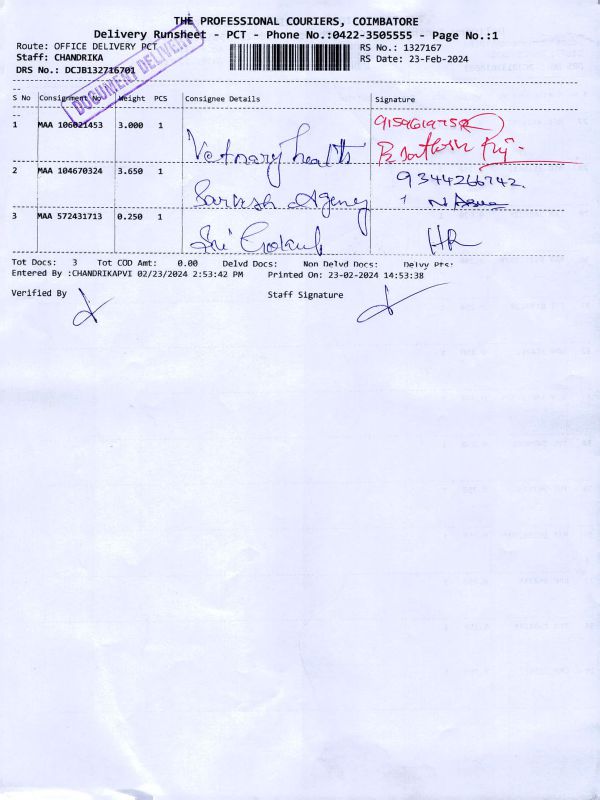 THE PROFESSIONAL COURIERS, COIMBATORE
Delivery Runsheet - PCT - Phone No.:0422-3505555 - Page No.:1
Route: OFFICE DELIVERY PCT
RS No.: 1327167
Staff: CHANDRIKA
RS Date: 23-Feb-2024
DRS No.: DCJB132716701
DOCUMENT DELIVERY
S No Consignment No Weight PCS Consignee Details Signature
1 MAA 106021453 3.000 1 Vetnary health
2 MAA 104670324 3.650 1 Sarvesh Agency 9344266742.
3 MAA 572431713 0.250 1 Sri HR
Tot Docs: 3 Tot COD Amt: 0.00 Delvd Docs: Non Delvd Docs: Delvy Pts:
Entered By :CHANDRIKAPVI 02/23/2024 2:53:42 PM Printed On: 23-02-2024 14:53:38
Verified By Staff Signature